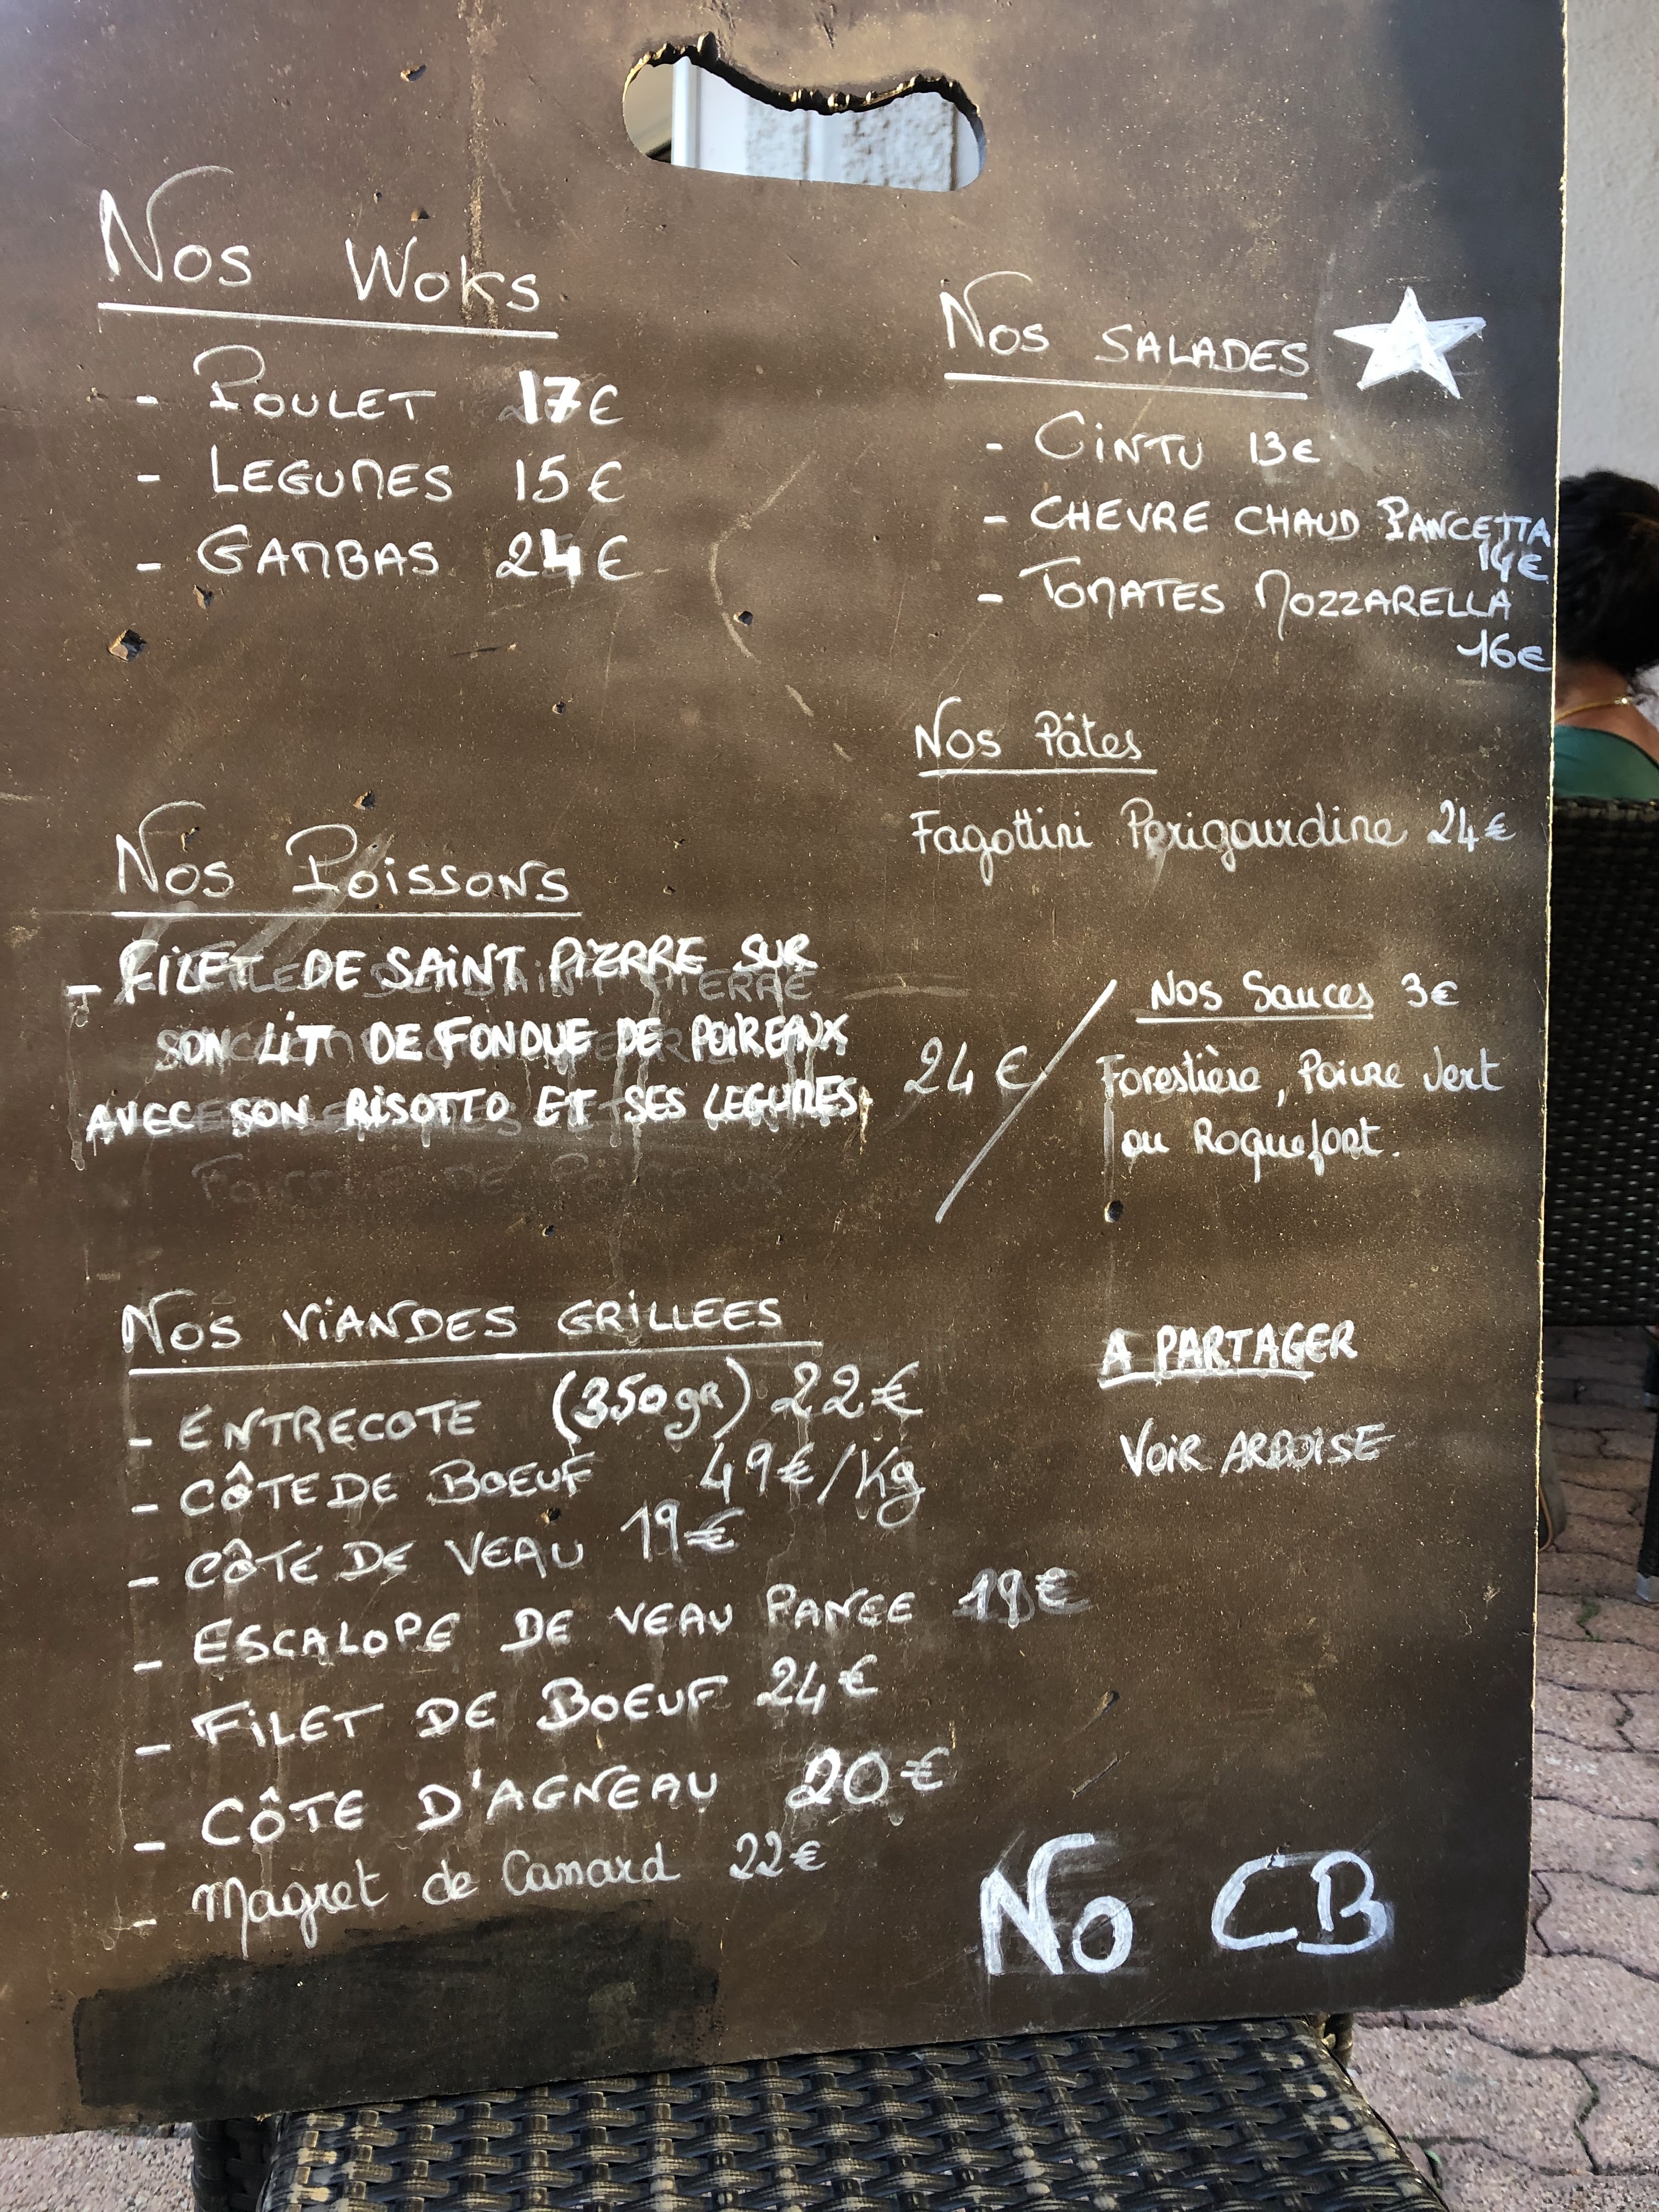 Nos Woks
- POULET 17€
- LEGUMES 15€
- GAMBAS 24€
Nos SALADES
- CINTU 13€
- CHEVRE CHAUD PANCETTA
14€
- TOMATES MOZZARELLA
16€
Nos Pâtes
Fagottini Perigourdine 24€
Nos Poissons
- FILET DE SAINT PIERRE SUR
SON LIT DE FONDUE DE POIREAUX
AVEC SON RISOTTO ET SES LEGUMES. 24€
Nos Sauces 3€
Forestière, Poivre Vert
ou Roquefort.
Nos VIANDES GRILLEES
- ENTRECOTE (350gr) 22€
- CÔTE DE BOEUF 49€/Kg
- CÔTE DE VEAU 19€
- ESCALOPE DE VEAU PANEE 19€
- FILET DE BOEUF 24€
- CÔTE D'AGNEAU 20€
- Magret de Canard 22€
A PARTAGER
VOIR ARDOISE
No CB